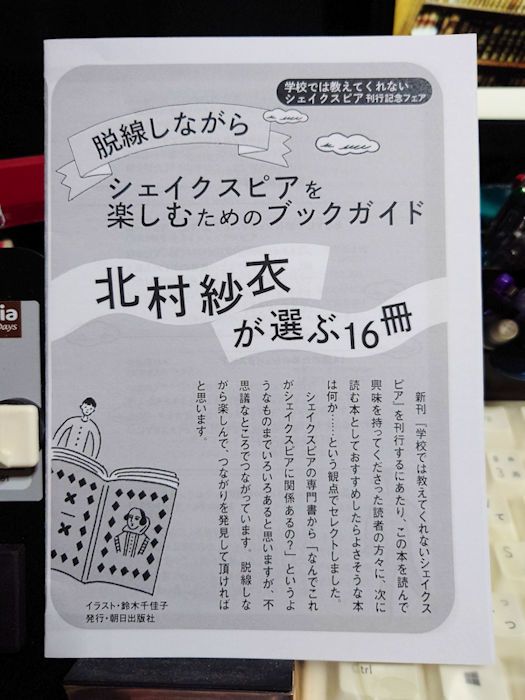 学校では教えてくれない
シェイクスピア 刊行記念フェア
脱線しながら
シェイクスピアを
楽しむためのブックガイド
北村紗衣
が選ぶ16冊
新刊『学校では教えてくれないシェイクス
ピア』を刊行するにあたり、この本を読んで
興味を持ってくださった読者の方々に、次に
読む本としておすすめしたらよさそうな本
は何か……という観点でセレクトしました。
シェイクスピアの専門書から「なんでこれ
がシェイクスピアに関係あるの？」というよ
うなものまでいろいろあると思いますが、不
思議なところでつながっています。脱線しな
がら楽しんで、つながりを発見して頂ければ
と思います。
イラスト・鈴木千佳子
発行・朝日出版社
ia
Days
Ctrl